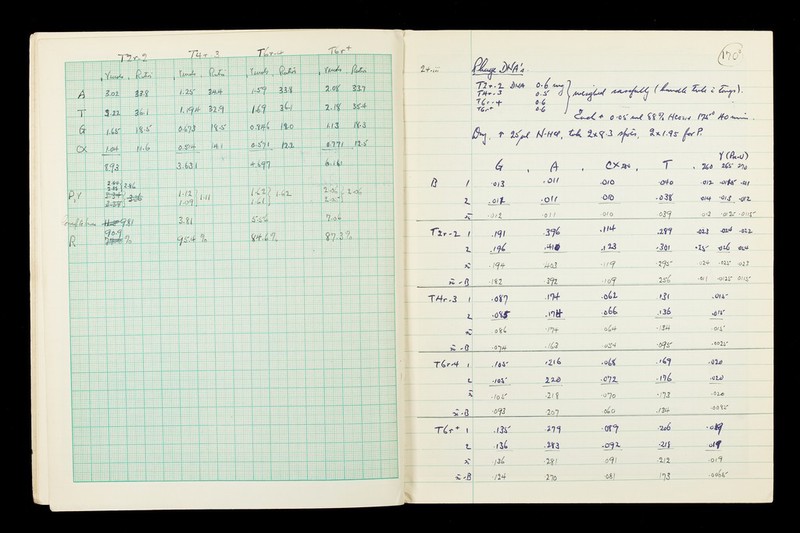 T2r-2 T4r-3 T6r-4 T6r+
γmols Ratio γmols Ratio γmols Ratio γmols Ratio
A 3.02 33.8 1.25 34.4 1.59 33.8 2.08 33.7
T 3.22 36.1 1.194 32.9 1.69 36.1 2.18 35.4
G 1.65 18.5 0.673 18.5 0.846 18.0 1.13 18.3
CX 1.04 11.6 0.514 14.1 0.571 12.2 0.771 12.5
8.93 3.631 4.697 6.161
P,γ 2.86 1.12 1.11 1.62 1.62 2.06 2.06
1.09 1.61
9.81 3.81 7.06
R 90.9 % 95.4 % 84.6 % 87.3 %
170
Phage DNA's.
T2r-2 DNA 0.6 mg
T4r-3 0.5
T6r-4 0.6
T6r+ 0.6
weighed carefully (handle tube c tongs).
Each + 0.05 ml 88% HCOOH 175° 40 min.
Dry, + 25μl N.HCl, take 2x8.3 spots, 2x1.95 for P.
G A CX T γ (P)
260 265 270
B 1 .013 .011 .010 .040 .012 .011
2 .011 .010 .038 .014 .013 .012
x̄ .012 .011 .010 .039 .013
T2r-2 1 .191 .396 .114 .289 .023 .024 .022
2 .196 .410 .123 .301 .025 .026 .024
x̄ .194 .403 .119 .295 .024 .025 .023
x̄-B .182 .392 .109 .256 .011
T4r-3 1 .087 .174 .062 .131 .015
2 .085 .174 .066 .136 .015
x̄ .086 .174 .064 .134 .015
x̄-B .074 .163 .054 .095 .0025
T6r-4 1 .105 .216 .068 .169 .020
2 .105 .220 .072 .176 .020
x̄ .105 .218 .070 .173 .020
x̄-B .093 .207 .060 .134
T6r+ 1 .135 .279 .089 .206 .019
2 .136 .283 .092 .218 .019
x̄ .136 .281 .091 .212 .019
x̄-B .124 .270 .081 .173 .0065